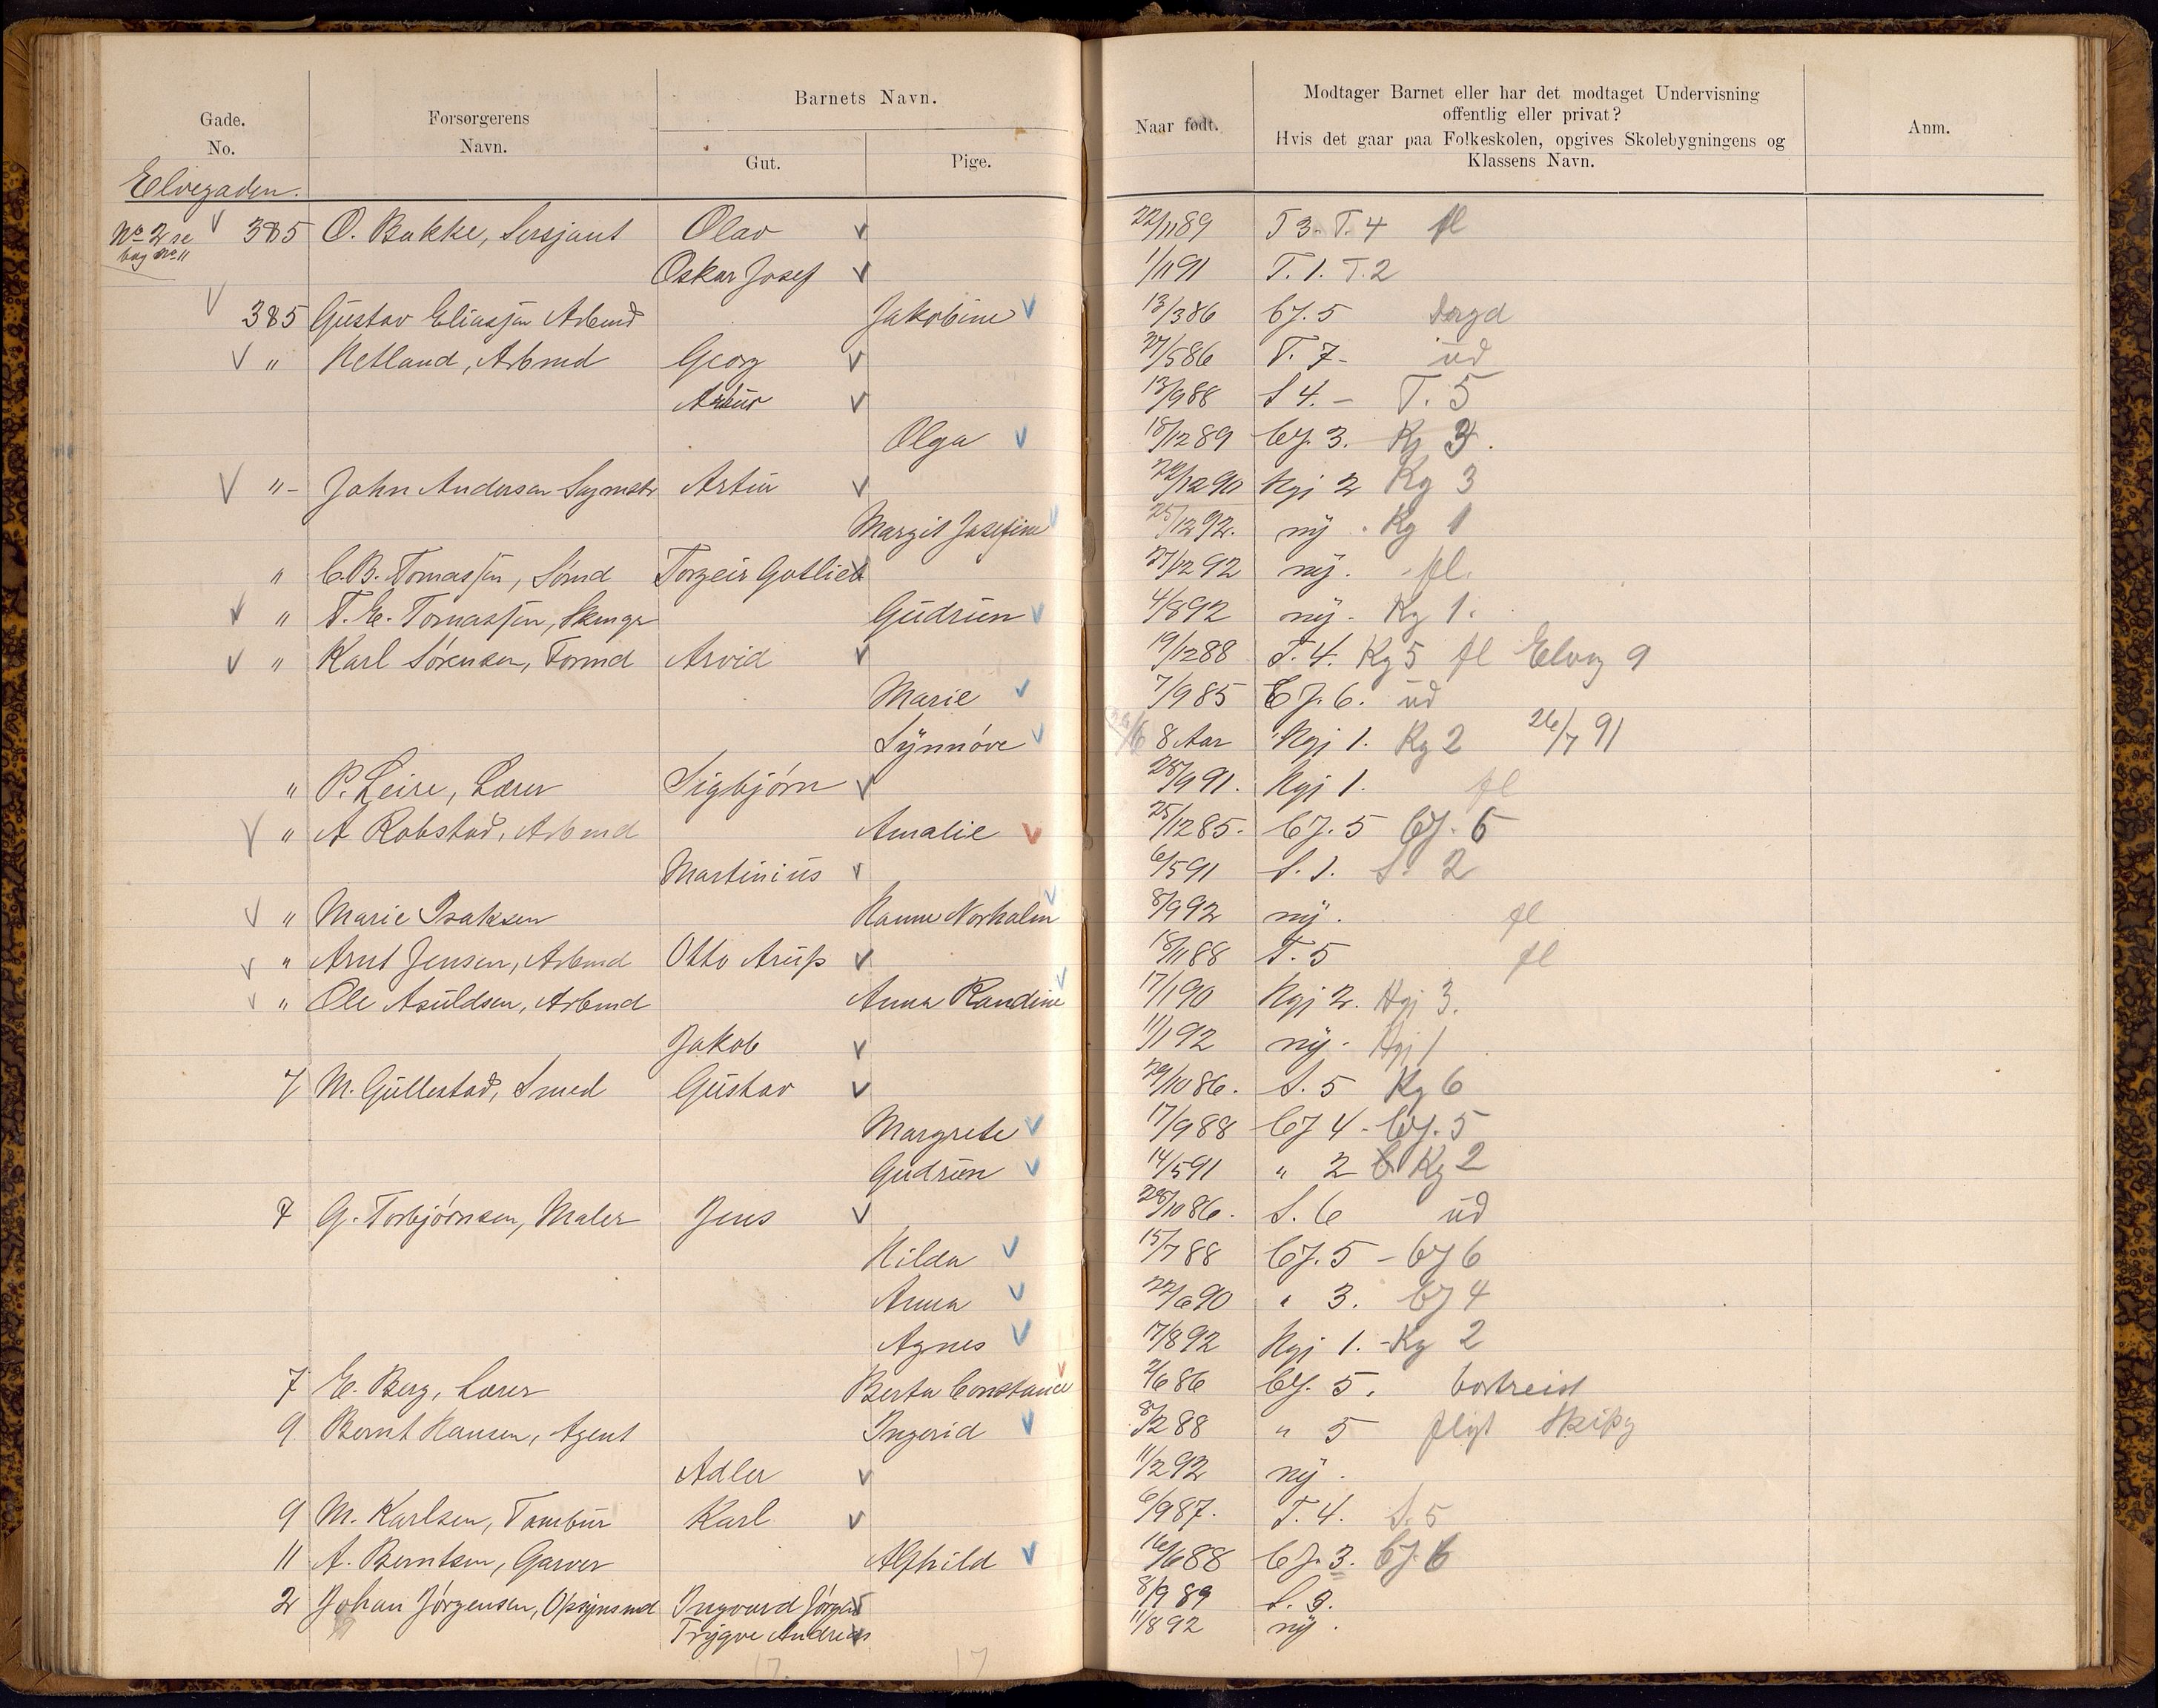 Gade.
No.
Forsørgerens
Navn.
Barnets Navn.
Gut.
Pige.
Naar født.
Modtager Barnet eller har det modtaget Undervisning
offentlig eller privat?
Hvis det gaar paa Folkeskolen, opgives Skolebygningens og
Klassens Navn.
Anm.
Elvegaden.
No 2 se bag No 11
385 O. Bakke, Sersjant Olav 22/11 89 T 3. T. 4 fl
Oskar Josef 1/11 91 T. 1. T. 2
385 Gustav Eliassen Arbmd Jakobine 13/3 86 CJ. 5
" Netland, Arbmd Georg 27/5 86 T. 7 - ud
Artur 13/9 88 S 4. - T. 5
Olga 18/12 89 CJ. 3. Kg 3.
" - John Andersen Artur 12 90 Kgj 2 Kg 3
Margit Josefine 25/12 92. ny. Kg 1
" C.B. Tomassen, Sømd Torgeir Gotlieb 27/12 92 ny. - fl.
" T. E. Tomassen, Gudrun 4/8 92 ny. Kg 1.
" Karl Sørensen, Tormd Arvid 19/12 88 T. 4. Kg 5 fl Elvg 9
Marie 7/9 85 CJ. 6. ud
Synnöve 8 Aar Kgj 1. Kg 2 26/7 91
" P. Leire, Lærer Sigbjørn 28/9 91. Kgj 1. fl
" A Robstad, Arbmd Amalie 25/12 85. CJ. 5 CJ. 6
Martinius 6/5 91 S. 1. S. 2
" Marie Isaksen Hanne Norholm 8/9 92 ny. fl
" Arnt Jensen, Arbmd Otto 18/11 88 T. 5 fl
" Ole Asuldsen, Arbmd Anna Randine 17/1 90 Kgj 2. Kgj 3.
Jakob 11/1 92 ny. Kgj 1
7 M. Gullestad, Smed Gustav 29/10 86. S. 5 Kg 6
Margrete 17/9 88 CJ 4 - CJ. 5
Gudrun 14/5 91 " 2 Kg 2
7 G. Torbjørnsen, Maler Jens 28/10 86. S. 6 ud
Hilda 15/7 88 CJ. 5 - CJ 6
Anna 22/6 90 " 3. CJ 4
Agnes 17/8 92 Kgj 1. - Kg 2
7 E. Berg, Lærer Berta Constance 2/6 86 CJ. 5. bortreist
9 Bernt Hansen, Agent Ingerid 8/2 88 " 5 flyt Skipg
Adler 11/2 92 ny.
9 M. Karlsen, Tambur Karl 6/9 87. T. 4. S. 5
11 A. Berntsen, Garver Alfhild 16/6 88 CJ. 3. CJ. 6
2 Johan Jørgensen, Opsynsmd Ingvard Jørgen 8/9 89 S. 3.
Trygve Andreas 11/8 92 ny.
17. 17